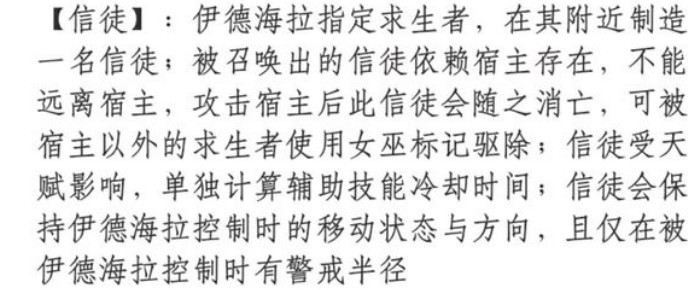 【信徒】：伊德海拉指定求生者，在其附近制造
一名信徒；被召唤出的信徒依赖宿主存在，不能
远离宿主，攻击宿主后此信徒会随之消亡，可被
宿主以外的求生者使用女巫标记驱除；信徒受天
赋影响，单独计算辅助技能冷却时间；信徒会保
持伊德海拉控制时的移动状态与方向，且仅在被
伊德海拉控制时有警戒半径